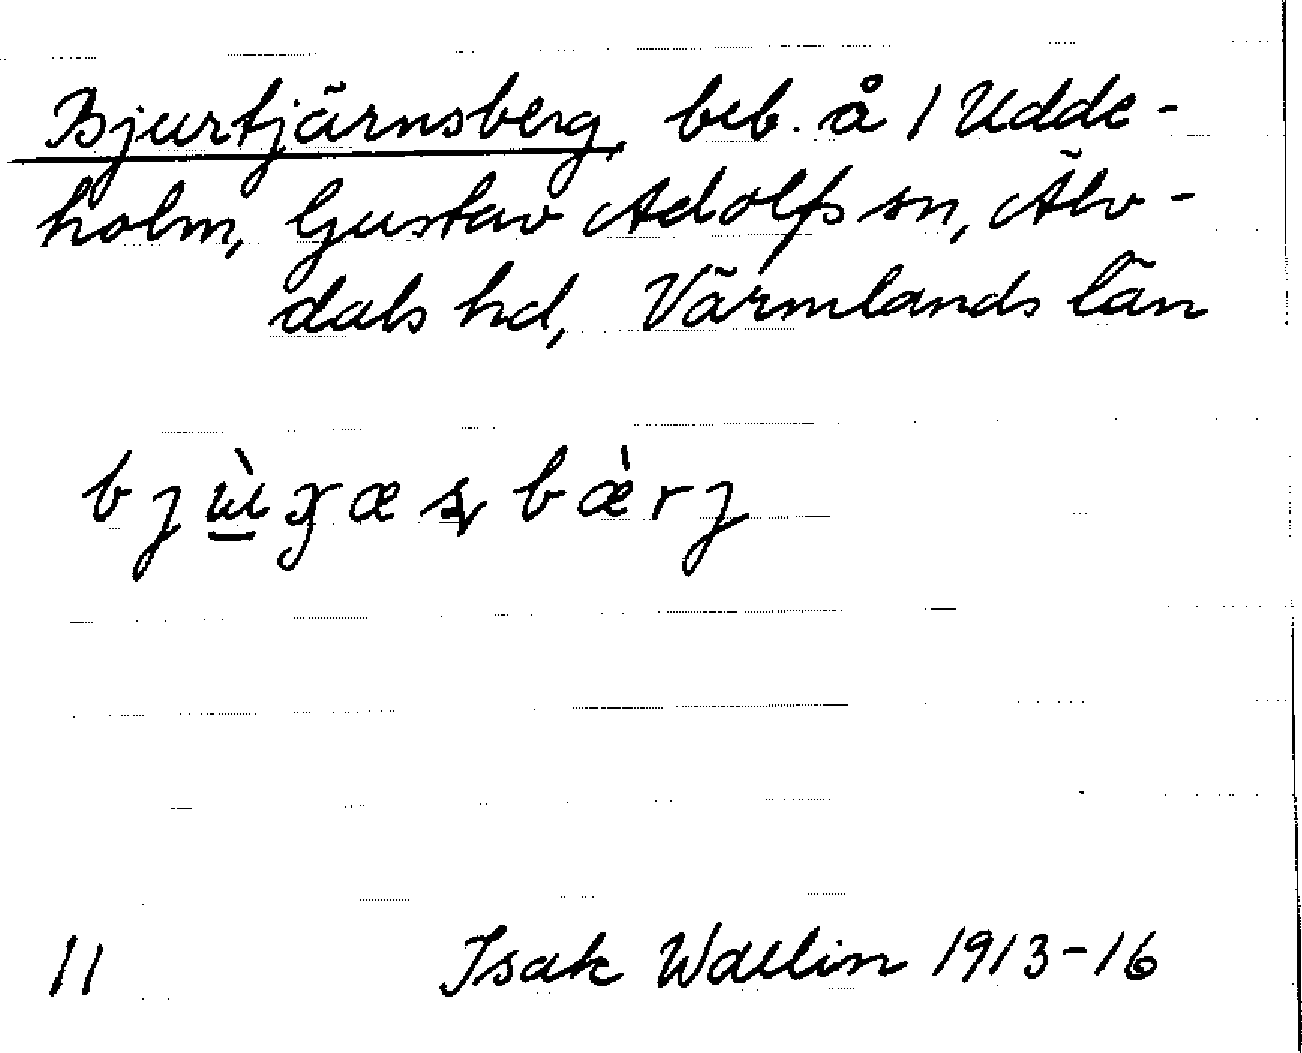 Bjurtjärnsberg, beb. å 1 Udde-
holm, Gustav Adolfs sn, Älv-
dals hd, Värmlands län
11
Isak Wallin 1913-16